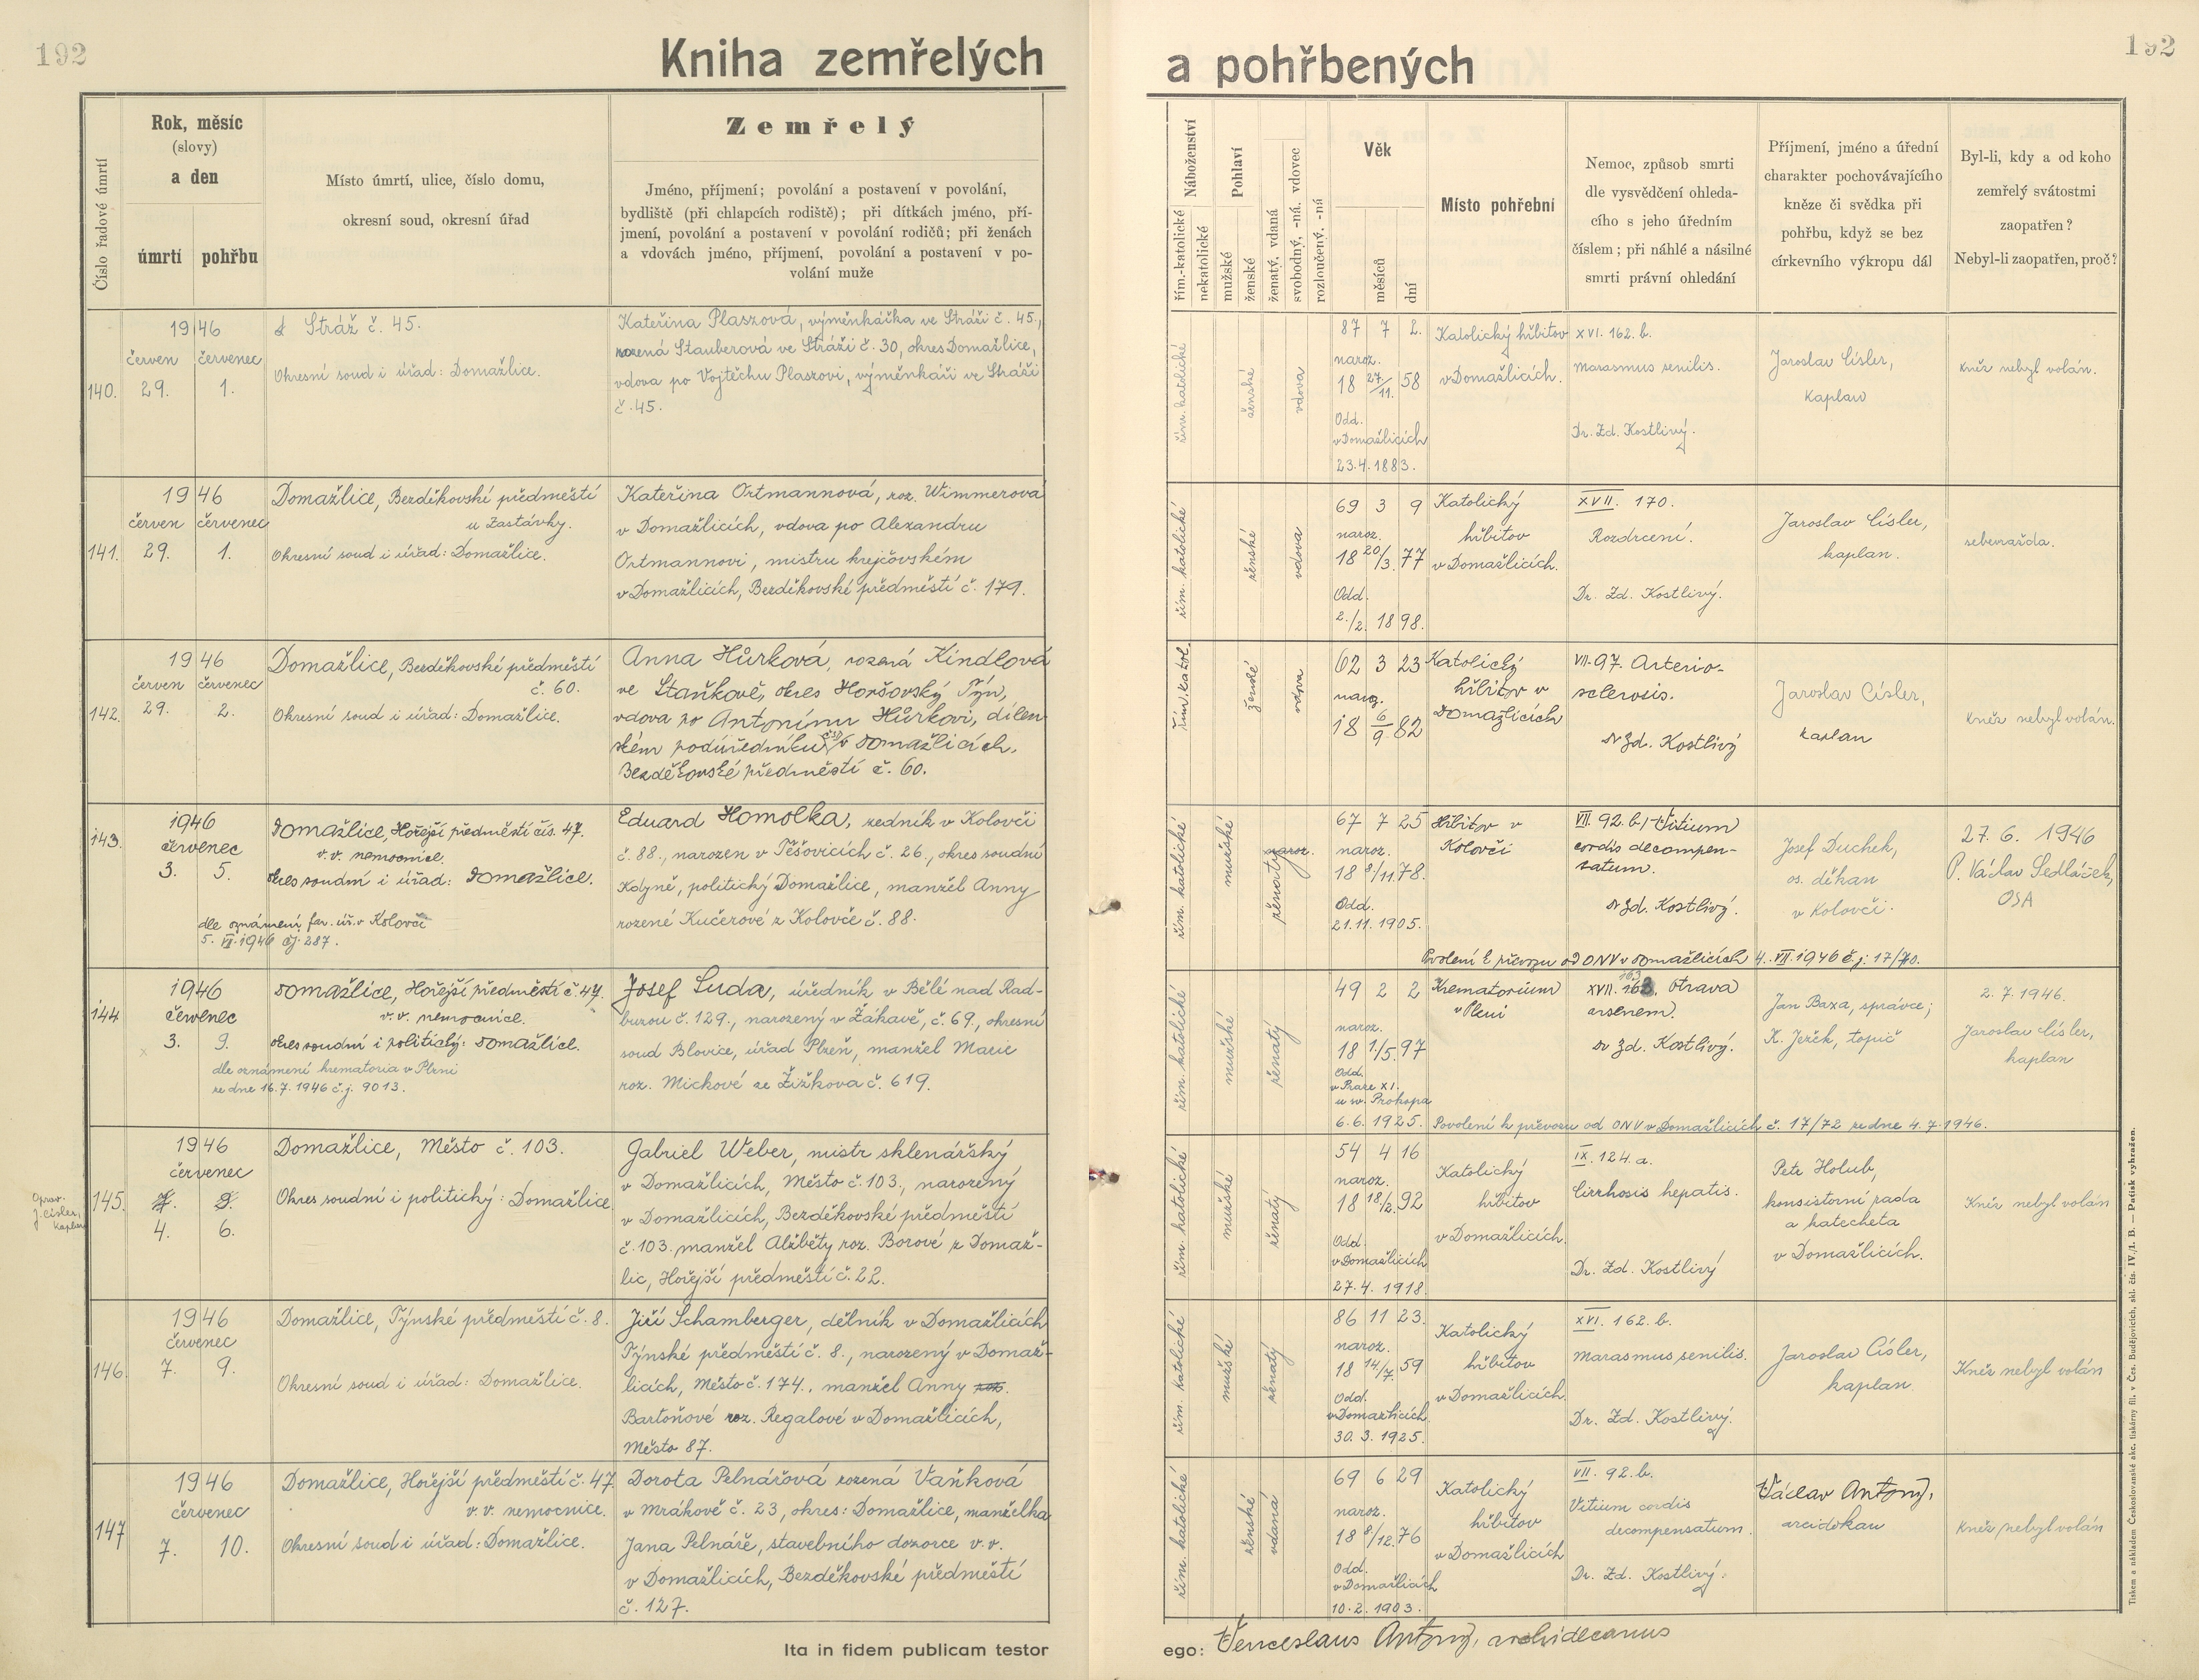 192
Kniha zemřelých
a pohřbených
192
Číslo řadové úmrtí
Rok, měsíc
(slovy)
a den
úmrtí
pohřbu
Místo úmrtí, ulice, číslo domu,
okresní soud, okresní úřad
Zemřelý
Jméno, příjmení; povolání a postavení v povolání,
bydliště (při chlapcích rodiště); při dítkách jméno, pří-
jmení, povolání a postavení v povolání rodičů; při ženách
a vdovách jméno, příjmení, povolání a postavení v po-
volání muže
Náboženství
řím.-katolické
nekatolické
Pohlaví
mužské
ženské
ženatý, vdaná
svobodný, -ná. vdovec
rozloučený, -ná
Věk
měsíců
dní
Místo pohřební
Nemoc, způsob smrti
dle vysvědčení ohleda-
cího s jeho úředním
číslem; při náhlé a násilné
smrti právní ohledání
Příjmení, jméno a úřední
charakter pochovávajícího
kněze či svědka při
pohřbu, když se bez
církevního výkropu dál
Byl-li, kdy a od koho
zemřelý svátostmi
zaopatřen?
Nebyl-li zaopatřen, proč?
140.
1946
červen červenec
29. 1.
Stráž č. 45.
Okresní soud i úřad: Domažlice.
Kateřina Plaszová, výměnkářka ve Stráži č. 45,
rozená Stauberová ve Stráži č. 30, okres Domažlice,
vdova po Vojtěchu Plaszovi, výměnkáři ve Stráži
č. 45.
řím. katolické
ženské
vdova
87 7 2.
naroz.
18 27/11. 58
Odd.
v Domažlicích
23.4.1883.
Katolický hřbitov
v Domažlicích.
XVI. 162. b.
Marasmus senilis.
Dr. Zd. Kostlivý.
Jaroslav Císler,
kaplan
Kněz nebyl volán.
141.
1946
červen červenec
29. 1.
Domažlice, Bezděkovské předměstí
u Zastávky.
Okresní soud i úřad: Domažlice.
Kateřina Ortmannová, roz. Wimmerová
v Domažlicích, vdova po Alexandru
Ortmannovi, mistru krejčovském
v Domažlicích, Bezděkovské předměstí č. 179.
řím. katolické
ženské
vdova
69 3 9
naroz.
18 20/3. 77
Odd.
2./2. 1898.
Katolický
hřbitov
v Domažlicích.
XVII. 170.
Rozdrcení.
Dr. Zd. Kostlivý.
Jaroslav Císler,
kaplan.
sebevražda.
142.
1946
červen červenec
29. 2.
Domažlice, Bezděkovské předměstí
č. 60.
Okresní soud i úřad: Domažlice.
Anna Hůrková, rozená Kindlová
ve Staňkově, okres Horšovský Týn,
vdova po Antonínu Hůrkovi, dílen-
ském podúředníku ČSD v Domažlicích,
Bezděkovské předměstí č. 60.
řím. katol.
ženské
vdova
62 3 23
naroz.
18 6/9 82
Katolický
hřbitov v
Domažlicích
VII. 97. Arterio-
sclerosis.
Dr Zd. Kostlivý
Jaroslav Císler,
kaplan
Kněz nebyl volán.
143.
1946
červenec
3. 5.
Domažlice, Hořejší předměstí čís. 47.
v.v. nemocnice.
okres soudní i úřad: Domažlice.
dle oznámení far. úř. v Kolovči
5. VII. 1946 čj. 287.
Eduard Homolka, zedník v Kolovči
č. 88., narozen v Těšovicích č. 26., okres soudní
Kdyně, politický Domažlice, manžel Anny
rozené Kučerové z Kolovče č. 88.
řím. katolické
mužské
ženatý
naroz.
67 7 25
naroz.
18 8/11. 78.
Odd.
21.11.1905.
Hřbitov v
Kolovči
VII. 92. b. Vitium
cordis decompen-
satum.
Dr Zd. Kostlivý.
Josef Duchek,
os. děkan
v Kolovči.
27.6. 1946
P. Václav Sedláček,
OSA
Povolení k převozu od ONV v Domažlicích 4. VII. 1946 č.j: 17/70.
144
1946
červenec
3. 9.
Domažlice, Hořejší předměstí č. 47.
v.v. nemocnice.
okres soudní i politický: Domažlice.
dle oznámení krematoria v Plzni
ze dne 16.7.1946 č.j. 9013.
Josef Suda, úředník v Bělé nad Rad-
buzou č. 129., narozený v Žákavě, č. 69., okresní
soud Blovice, úřad Plzeň, manžel Marie
roz. Mickové ze Žižkova č. 619.
řím. katolické
mužské
ženatý
49 2 2
naroz.
18 1/5. 97
Odd.
v Praze XI.
u sv. Prokopa
6.6.1925.
Krematorium
v Plzni
163
XVII. 163. Otrava
arsenem.
Dr Zd. Kostlivý.
Jan Baxa, správce;
K. Ježek, topič
2.7.1946.
Jaroslav Císler,
kaplan
Povolení k převozu od ONV v Domažlicích č. 17/72 ze dne 4.7.1946.
Oprav.
J. Císler,
kaplan
145.
1946
červenec
4. 6.
Domažlice, Město č. 103.
Okres soudní i politický: Domažlice
Gabriel Weber, mistr sklenářský
v Domažlicích, Město č. 103., narozený
v Domažlicích, Bezděkovské předměstí
č. 103. manžel Alžběty roz. Borové z Domaž-
lic, Hořejší předměstí č. 22.
řím. katolické
mužské
ženatý
54 4 16
naroz.
18 18/2. 92
Odd.
v Domažlicích
27.4.1918.
Katolický
hřbitov
v Domažlicích.
IX. 124. a.
Cirrhosis hepatis.
Dr. Zd. Kostlivý
Petr Holub,
konsistorní rada
a katecheta
v Domažlicích.
Kněz nebyl volán
146.
1946
červenec
7. 9.
Domažlice, Týnské předměstí č. 8.
Okresní soud i úřad: Domažlice.
Jiří Schamberger, dělník v Domažlicích
Týnské předměstí č. 8., narozený v Domaž-
licích, Město č. 174., manžel Anny roz.
Bartoňové roz. Regalové v Domažlicích,
Město 87.
řím. katolické
mužské
ženatý
86 11 23.
naroz.
18 14/7. 59
Odd.
v Domažlicích
30.3.1925.
Katolický
hřbitov
v Domažlicích.
XVI. 162. b.
Marasmus senilis.
Dr. Zd. Kostlivý.
Jaroslav Císler,
kaplan.
Kněz nebyl volán
147
1946
červenec
7. 10.
Domažlice, Hořejší předměstí č. 47
v.v. nemocnice.
Okresní soud i úřad: Domažlice.
Dorota Pelnářová rozená Vaňková
v Mrákově č. 23, okres: Domažlice, manželka
Jana Pelnáře, stavebního dozorce v.v.
v Domažlicích, Bezděkovské předměstí
č. 127.
řím. katolické
ženské
vdaná
69 6 29
naroz.
18 8/12. 76
Odd.
v Domažlicích
10.2.1903.
Katolický
hřbitov
v Domažlicích
VII. 92. b.
Vitium cordis
decompensatum.
Dr. Zd. Kostlivý.
Václav Antony,
arciděkan
Kněz nebyl volán
Ita in fidem publicam testor
ego: Venceslaus Antony, archidecanus
Tiskem a nákladem Československé akc. tiskárny fil. v Čes. Budějovicích, skl. čís. IV./1. B. — Patisk vyhražen.